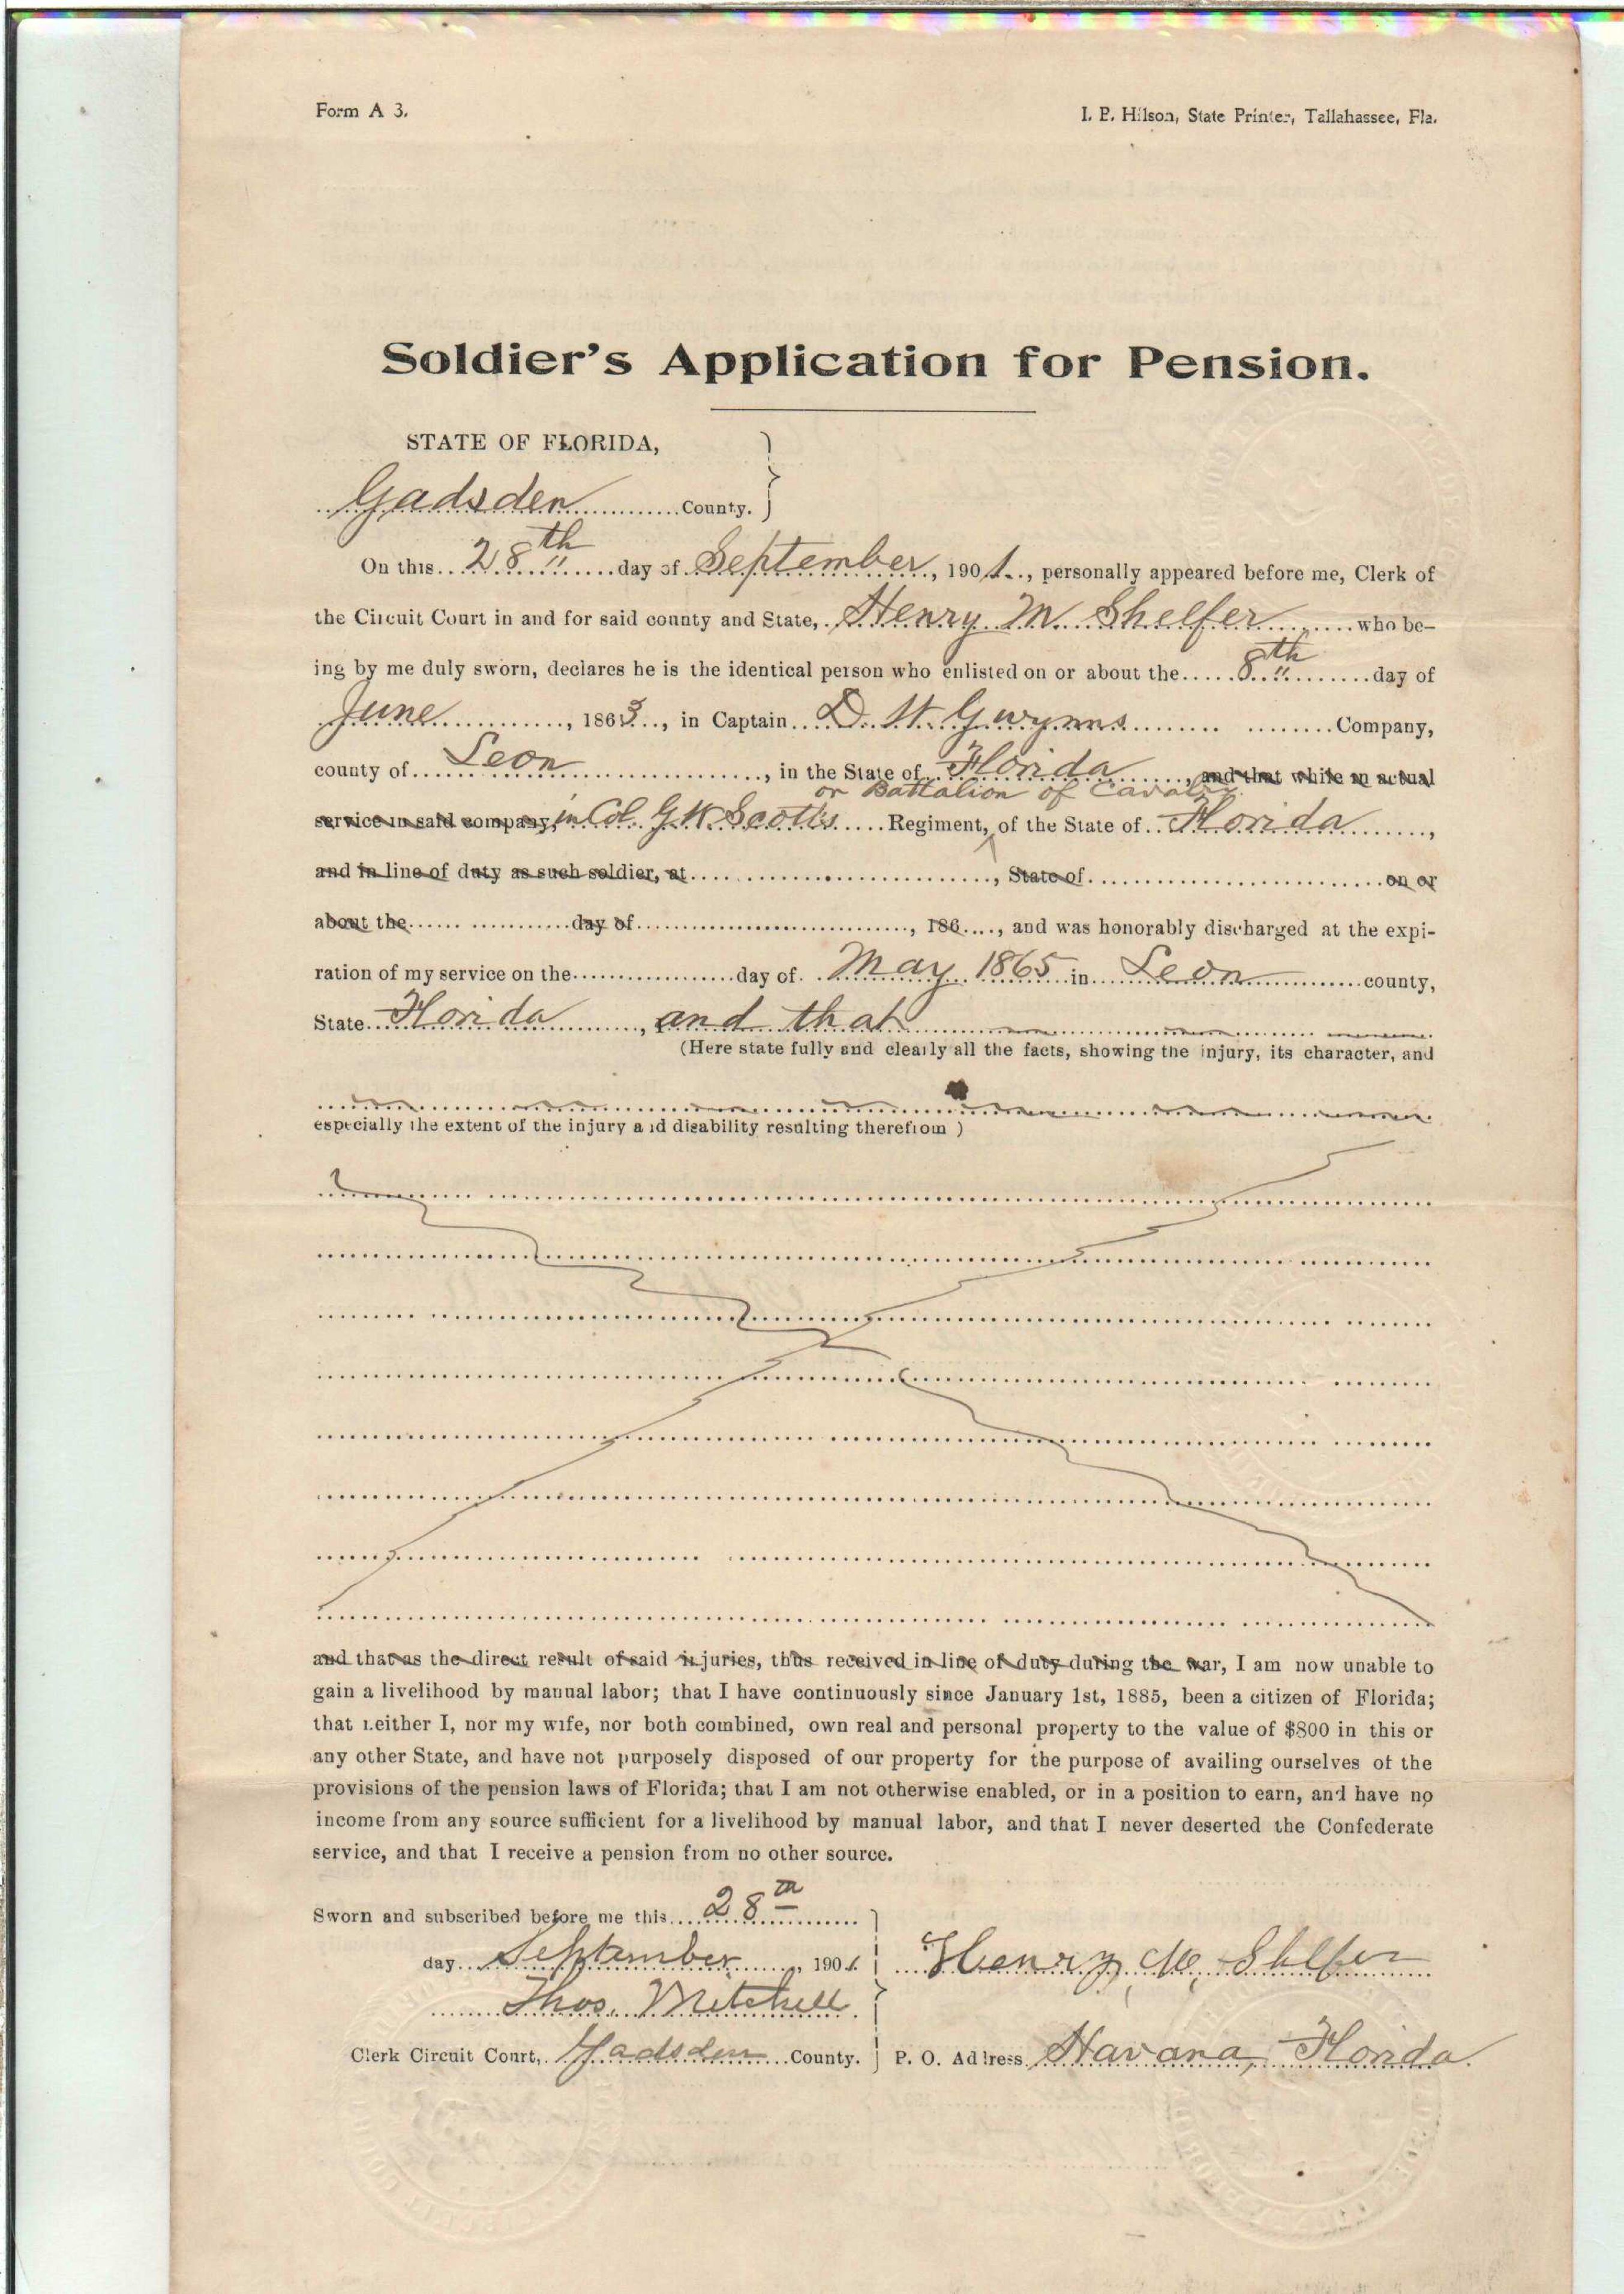 Form A 3.
I. B. Hilson, State Printer, Tallahassee, Fla.
Soldier's Application for Pension.
STATE OF FLORIDA,
Gadsden County.
On this 28th day of September, 1901., personally appeared before me, Clerk of
the Circuit Court in and for said county and State, Henry M. Shelfer who be-
ing by me duly sworn, declares he is the identical person who enlisted on or about the 8th day of
June, 1863, in Captain D. W. Gwynns Company,
county of Leon, in the State of Florida, and that while in actual
or Battalion of Cavalry
service in said company, in Col. G. W. Scott's Regiment, of the State of Florida,
and in line of duty as such soldier, at, State of on or
about the day of, 186, and was honorably discharged at the expi-
ration of my service on the day of May 1865 in Leon county,
State Florida, and that
(Here state fully and clearly all the facts, showing the injury, its character, and
especially the extent of the injury and disability resulting therefrom)
and that as the direct result of said injuries, thus received in line of duty during the war, I am now unable to
gain a livelihood by manual labor; that I have continuously since January 1st, 1885, been a citizen of Florida;
that neither I, nor my wife, nor both combined, own real and personal property to the value of $800 in this or
any other State, and have not purposely disposed of our property for the purpose of availing ourselves of the
provisions of the pension laws of Florida; that I am not otherwise enabled, or in a position to earn, and have no
income from any source sufficient for a livelihood by manual labor, and that I never deserted the Confederate
service, and that I receive a pension from no other source.
Sworn and subscribed before me this 28th
day September, 1901
Henry M. Shelfer
Thos. Mitchell
Clerk Circuit Court, Gadsden County.
P. O. Address Havana, Florida.